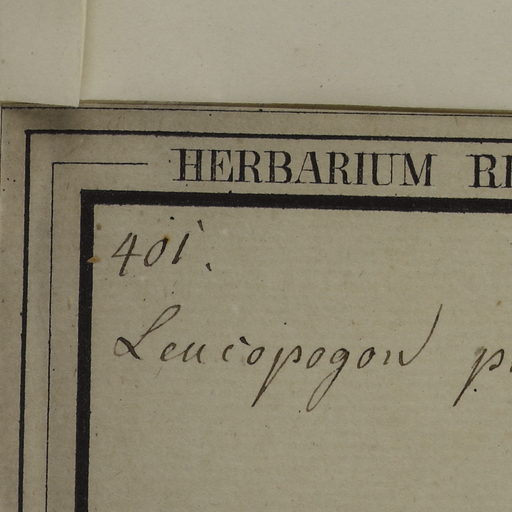 HERBARIUM
401.
Leucopogon